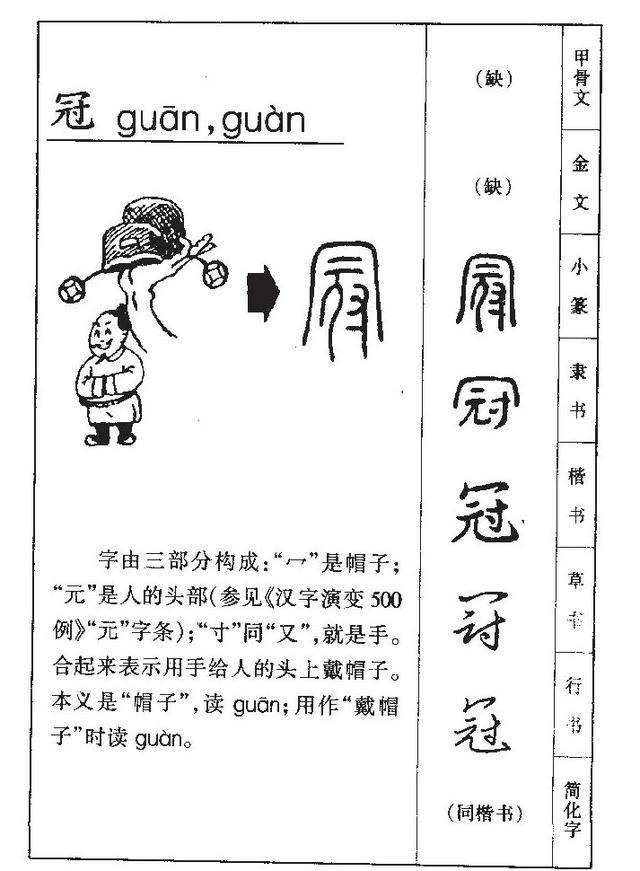 冠 guān, guàn
字由三部分构成：“冖”是帽子；
“元”是人的头部（参见《汉字演变500
例》“元”字条）；“寸”同“又”，就是手。
合起来表示用手给人的头上戴帽子。
本义是“帽子”，读 guān；用作“戴帽
子”时读 guàn。
（缺） 甲骨文
（缺） 金文
冠 小篆
冠 隶书
冠 楷书
冠 草书
冠 行书
（同楷书） 简化字